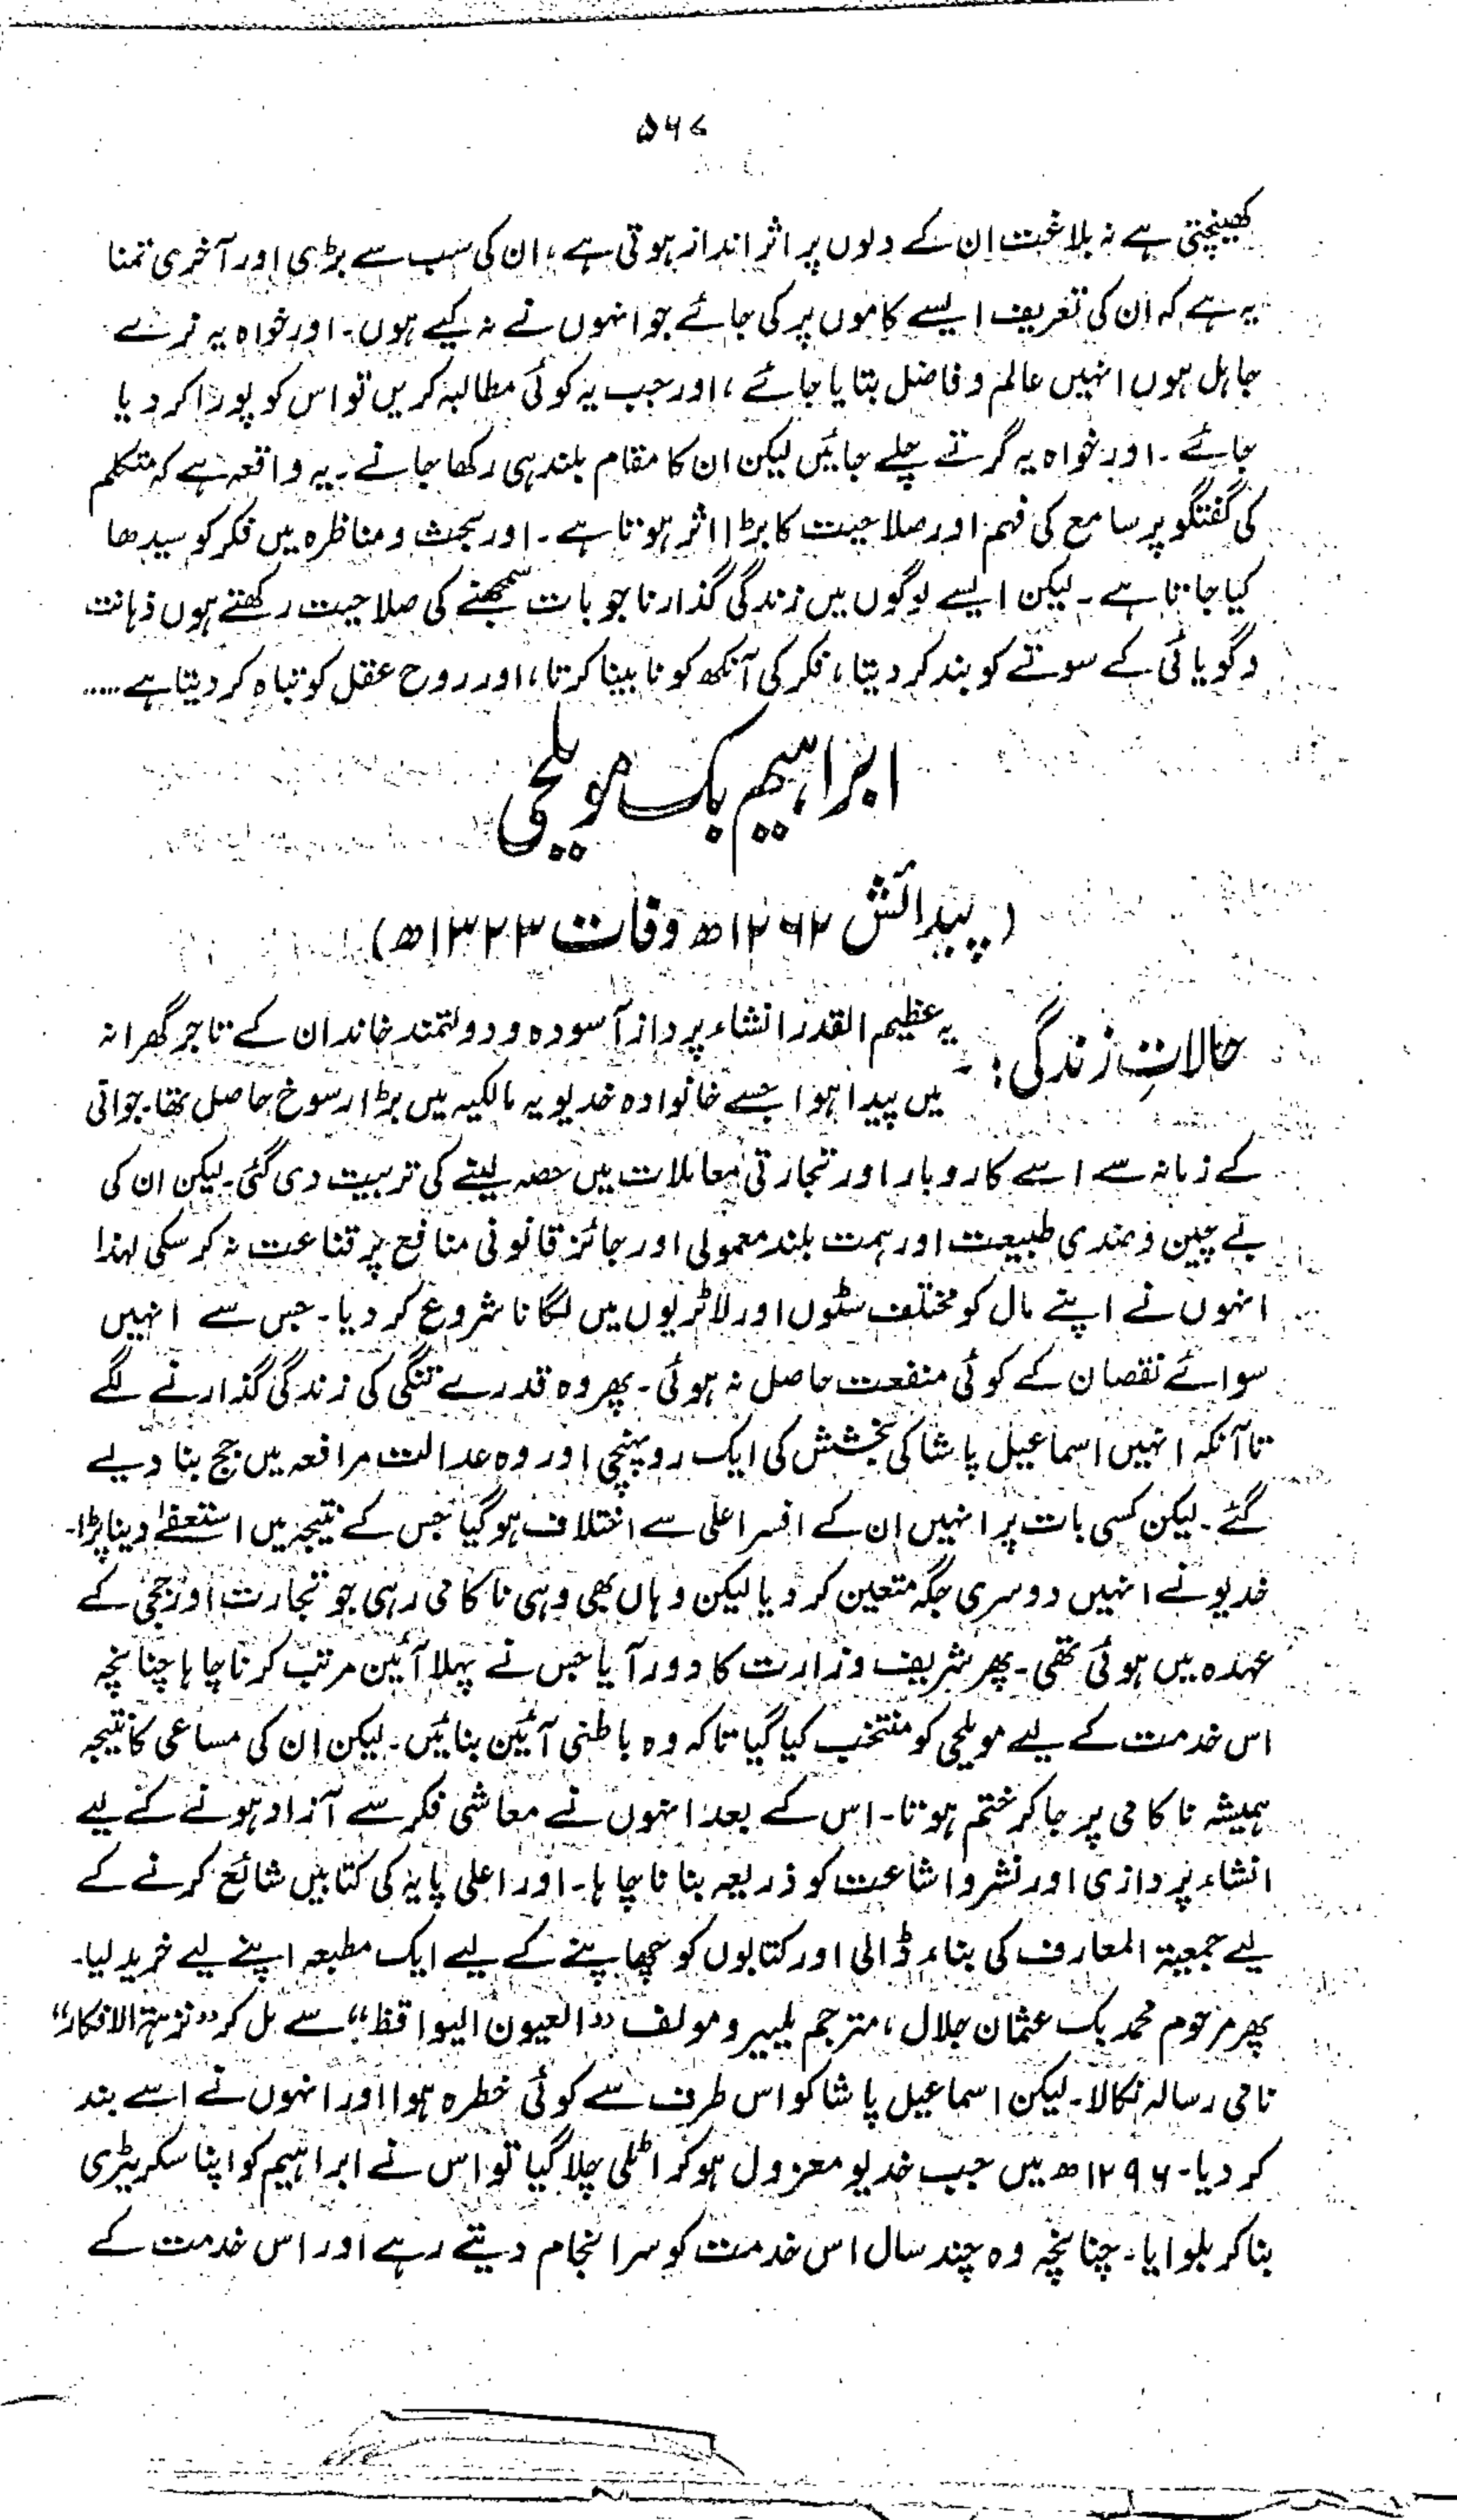 ۵۶۷
کھینچتی ہے نہ بلاغت ان کے دلوں پر اثر انداز ہوتی ہے، ان کی سب سے بڑی اور آخری تمنا
یہ ہے کہ ان کی تعریف ایسے کاموں پر کی جائے جو انہوں نے نہ کیے ہوں۔ اور خواہ یہ نرے
جاہل ہوں انہیں عالم و فاضل بتایا جائے، اور جب یہ کوئی مطالبہ کریں تو اس کو پورا کر دیا
جائے۔ اور خواہ یہ گرتے چلے جائیں لیکن ان کا مقام بلند ہی رکھا جائے۔ یہ واقعہ ہے کہ متکلم
کی گفتگو پر سامع کی فہم اور صلاحیت کا بڑا اثر ہوتا ہے۔ اور بحث و مناظرہ میں فکر کو سیدھا
کیا جاتا ہے۔ لیکن ایسے لوگوں میں زندگی گذارنا جو بات سمجھنے کی صلاحیت رکھتے ہوں ذہانت
و گویائی کے سوتے کو بند کر دیتا، فکر کی آنکھ کو نابینا کرتا، اور روح عقل کو تباہ کر دیتا ہے .....
ابراہیم بک مویلحی
(پیدائش ۱۲۶۲ھ وفات ۱۳۲۳ھ)
حالاتِ زندگی:- یہ عظیم القدر انشاء پرداز آسودہ و دولتمند خاندان کے تاجر گھرانہ
میں پیدا ہوا جسے خانوادہ خدیویہ مالکیہ میں بڑا رسوخ حاصل تھا۔ جوانی
کے زمانہ سے اسے کاروبار اور تجارتی معاملات میں حصہ لینے کی تربیت دی گئی۔ لیکن ان کی
بے چین و ضدی طبیعت اور ہمت بلند معمولی اور جائز قانونی منافع پر قناعت نہ کر سکی لہذا
انہوں نے اپنے مال کو مختلف سٹوں اور لاٹریوں میں لگانا شروع کر دیا۔ جس سے انہیں
سوائے نقصان کے کوئی منفعت حاصل نہ ہوئی۔ پھر وہ قدرے تنگی کی زندگی گذارنے لگے
تا آنکہ انہیں اسماعیل پاشا کی بخشش کی ایک رو پہنچی اور وہ عدالت مرافعہ میں جج بنا دیے
گئے۔ لیکن کسی بات پر انہیں ان کے افسر اعلی سے اختلاف ہو گیا جس کے نتیجہ میں استعفےٰ دینا پڑا۔
خدیو نے انہیں دوسری جگہ متعین کر دیا لیکن وہاں بھی وہی ناکامی رہی جو تجارت اور ججی کے
عہدہ میں ہوئی تھی۔ پھر شریف وزارت کا دور آیا جس نے پہلا آئین مرتب کرنا چاہا چنانچہ
اس خدمت کے لیے مویلحی کو منتخب کیا گیا تاکہ وہ باطنی آئین بنائیں۔ لیکن ان کی مساعی کا نتیجہ
ہمیشہ ناکامی پر جا کر ختم ہوتا۔ اس کے بعد انہوں نے معاشی فکر سے آزاد ہونے کے لیے
انشاء پردازی اور نشر و اشاعت کو ذریعہ بنانا چاہا۔ اور اعلی پایہ کی کتابیں شائع کرنے کے
لیے جمعیۃ المعارف کی بناء ڈالی اور کتابوں کو چھاپنے کے لیے ایک مطبعہ اپنے لیے خرید لیا۔
پھر مرحوم محمد بک عثمان جلال، مترجم یلییر و مولف ”العیون الیواقظ“ سے مل کر ”نزہتہ الافکار“
نامی رسالہ نکالا۔ لیکن اسماعیل پاشا کو اس طرف سے کوئی خطرہ ہوا اور انہوں نے اسے بند
کر دیا۔ ۱۲۹۶ھ میں جب خدیو معزول ہو کر اٹلی چلا گیا تو اس نے ابراہیم کو اپنا سکریٹری
بنا کر بلوایا۔ چنانچہ وہ چند سال اس خدمت کو سرانجام دیتے رہے اور اس خدمت کے